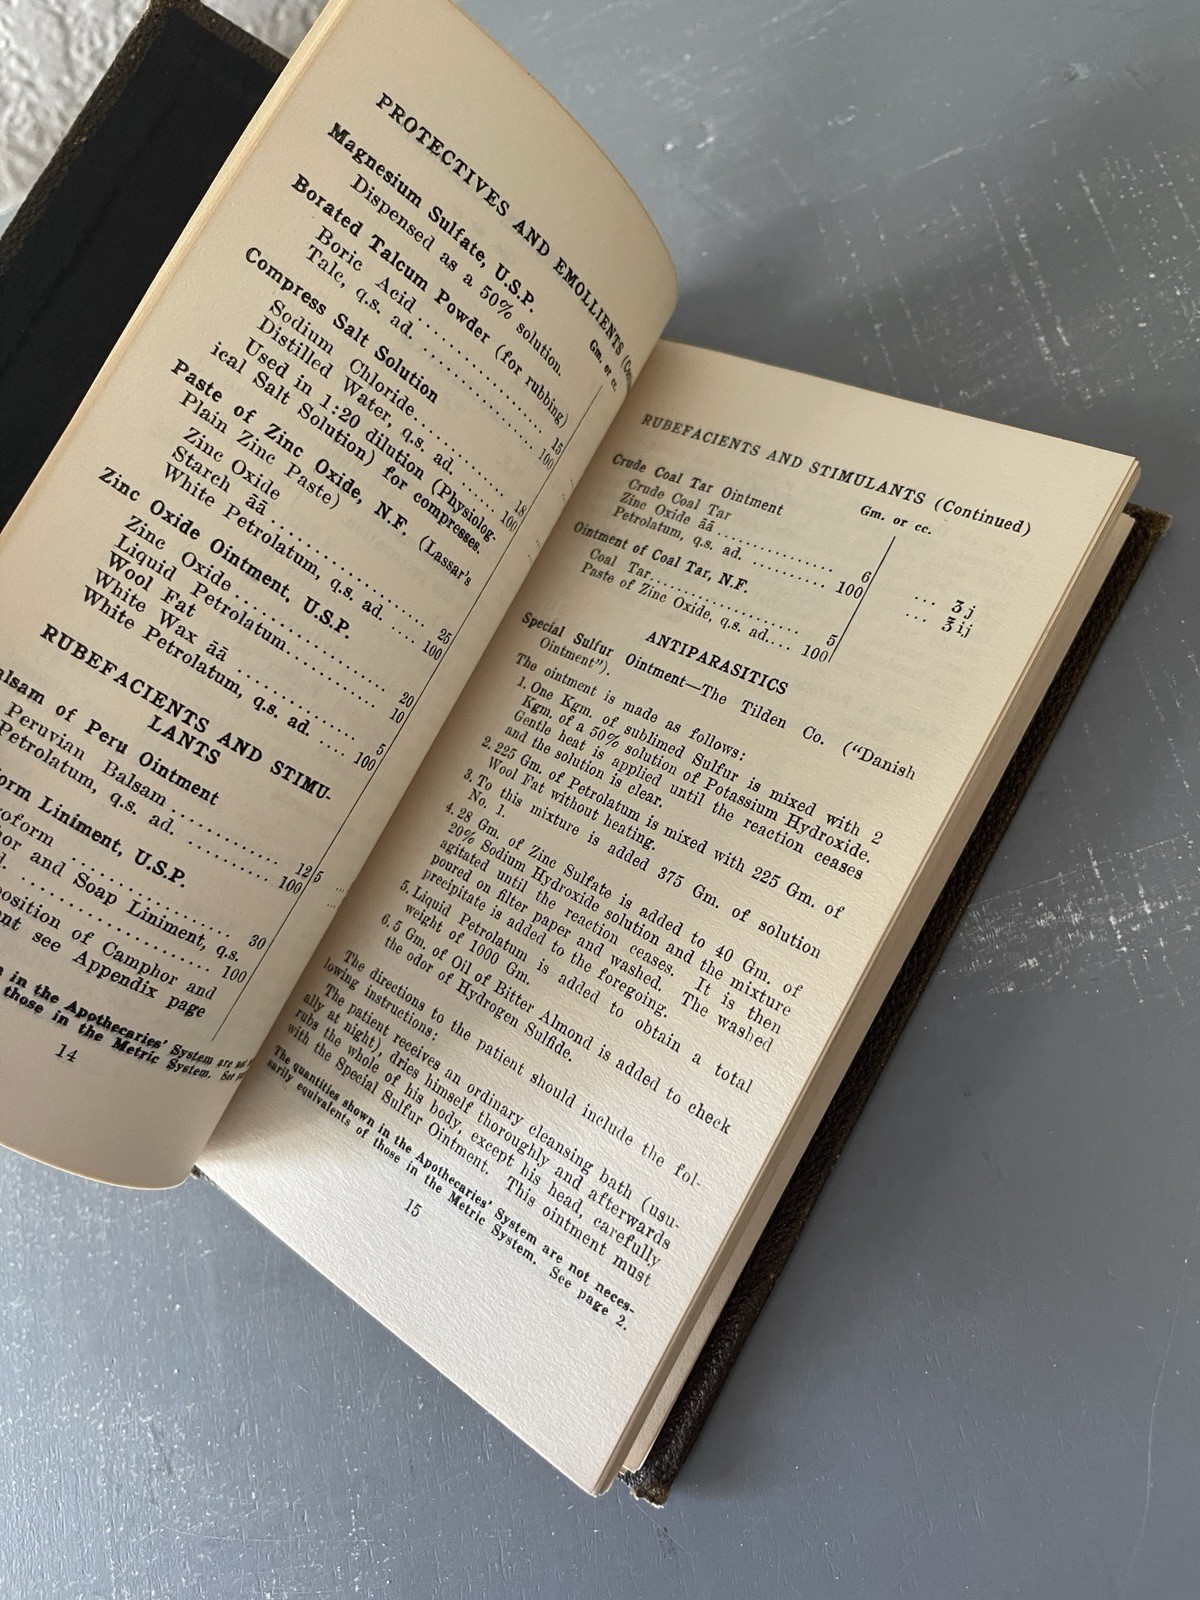 PROTECTIVES AND EMOLLIENTS
Gm. or cc.
Magnesium Sulfate, U.S.P.
Dispensed as a 50% solution.
Borated Talcum Powder (for rubbing)
Boric Acid .................. 15
Talc, q.s. ad. .................. 100
Compress Salt Solution
Sodium Chloride.................. 18
Distilled Water, q.s. ad. ........ 100
Used in 1:20 dilution (Physiolog-
ical Salt Solution) for compresses.
Paste of Zinc Oxide, N.F. (Lassar's
Plain Zinc Paste)
Zinc Oxide
Starch āā .................. 25
White Petrolatum, q.s. ad. ..... 100
Zinc Oxide Ointment, U.S.P.
Zinc Oxide .................. 20
Liquid Petrolatum.................. 10
Wool Fat
White Wax āā .................. 5
White Petrolatum, q.s. ad. .... 100
RUBEFACIENTS AND STIMU-
LANTS
alsam of Peru Ointment
Peruvian Balsam .................. 12 5
Petrolatum, q.s. ad. .................. 100
orm Liniment, U.S.P.
oroform .................. 30
hor and Soap Liniment, q.s.
d. .................. 100
position of Camphor and
ent see Appendix page
n in the Apothecaries' System are not
those in the Metric System. See
14
RUBEFACIENTS AND STIMULANTS (Continued)
Gm. or cc.
Crude Coal Tar Ointment
Crude Coal Tar
Zinc Oxide āā .................. 6 ... ʒj
Petrolatum, q.s. ad. ........... 100 ... ℥ij
Ointment of Coal Tar, N.F.
Coal Tar.................. 5
Paste of Zinc Oxide, q.s. ad.... 100
ANTIPARASITICS
Special Sulfur Ointment—The Tilden Co. ("Danish
Ointment").
The ointment is made as follows:
1. One Kgm. of sublimed Sulfur is mixed with 2
Kgm. of a 50% solution of Potassium Hydroxide.
Gentle heat is applied until the reaction ceases
and the solution is clear.
2. 225 Gm. of Petrolatum is mixed with 225 Gm. of
Wool Fat without heating.
3. To this mixture is added 375 Gm. of solution
No. 1.
4. 28 Gm. of Zinc Sulfate is added to 40 Gm. of
20% Sodium Hydroxide solution and the mixture
agitated until the reaction ceases. It is then
poured on filter paper and washed. The washed
precipitate is added to the foregoing.
5. Liquid Petrolatum is added to obtain a total
weight of 1000 Gm.
6. 5 Gm. of Oil of Bitter Almond is added to check
the odor of Hydrogen Sulfide.
The directions to the patient should include the fol-
lowing instructions:
The patient receives an ordinary cleansing bath (usu-
ally at night), dries himself thoroughly and afterwards
rubs the whole of his body, except his head, carefully
with the Special Sulfur Ointment. This ointment must
The quantities shown in the Apothecaries' System are not neces-
sarily equivalents of those in the Metric System. See page 2.
15